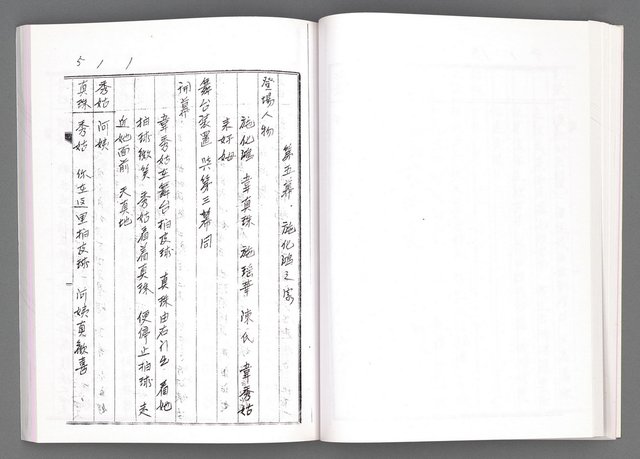 5 / 1
第五幕. 施化鴻之家
登場人物
施化鴻 韋真珠 施瑶華 陳氏 韋秀姑
来好姆
舞台装置 與第三幕同
開幕
韋秀姑在舞台拍皮球 真珠由右引出 看她
拍球微笑 秀姑看着真珠 便停止拍球 走
近她面前 天真地
秀姑 阿姨
真珠 秀姑 你在这里拍皮球 阿姨真歡喜